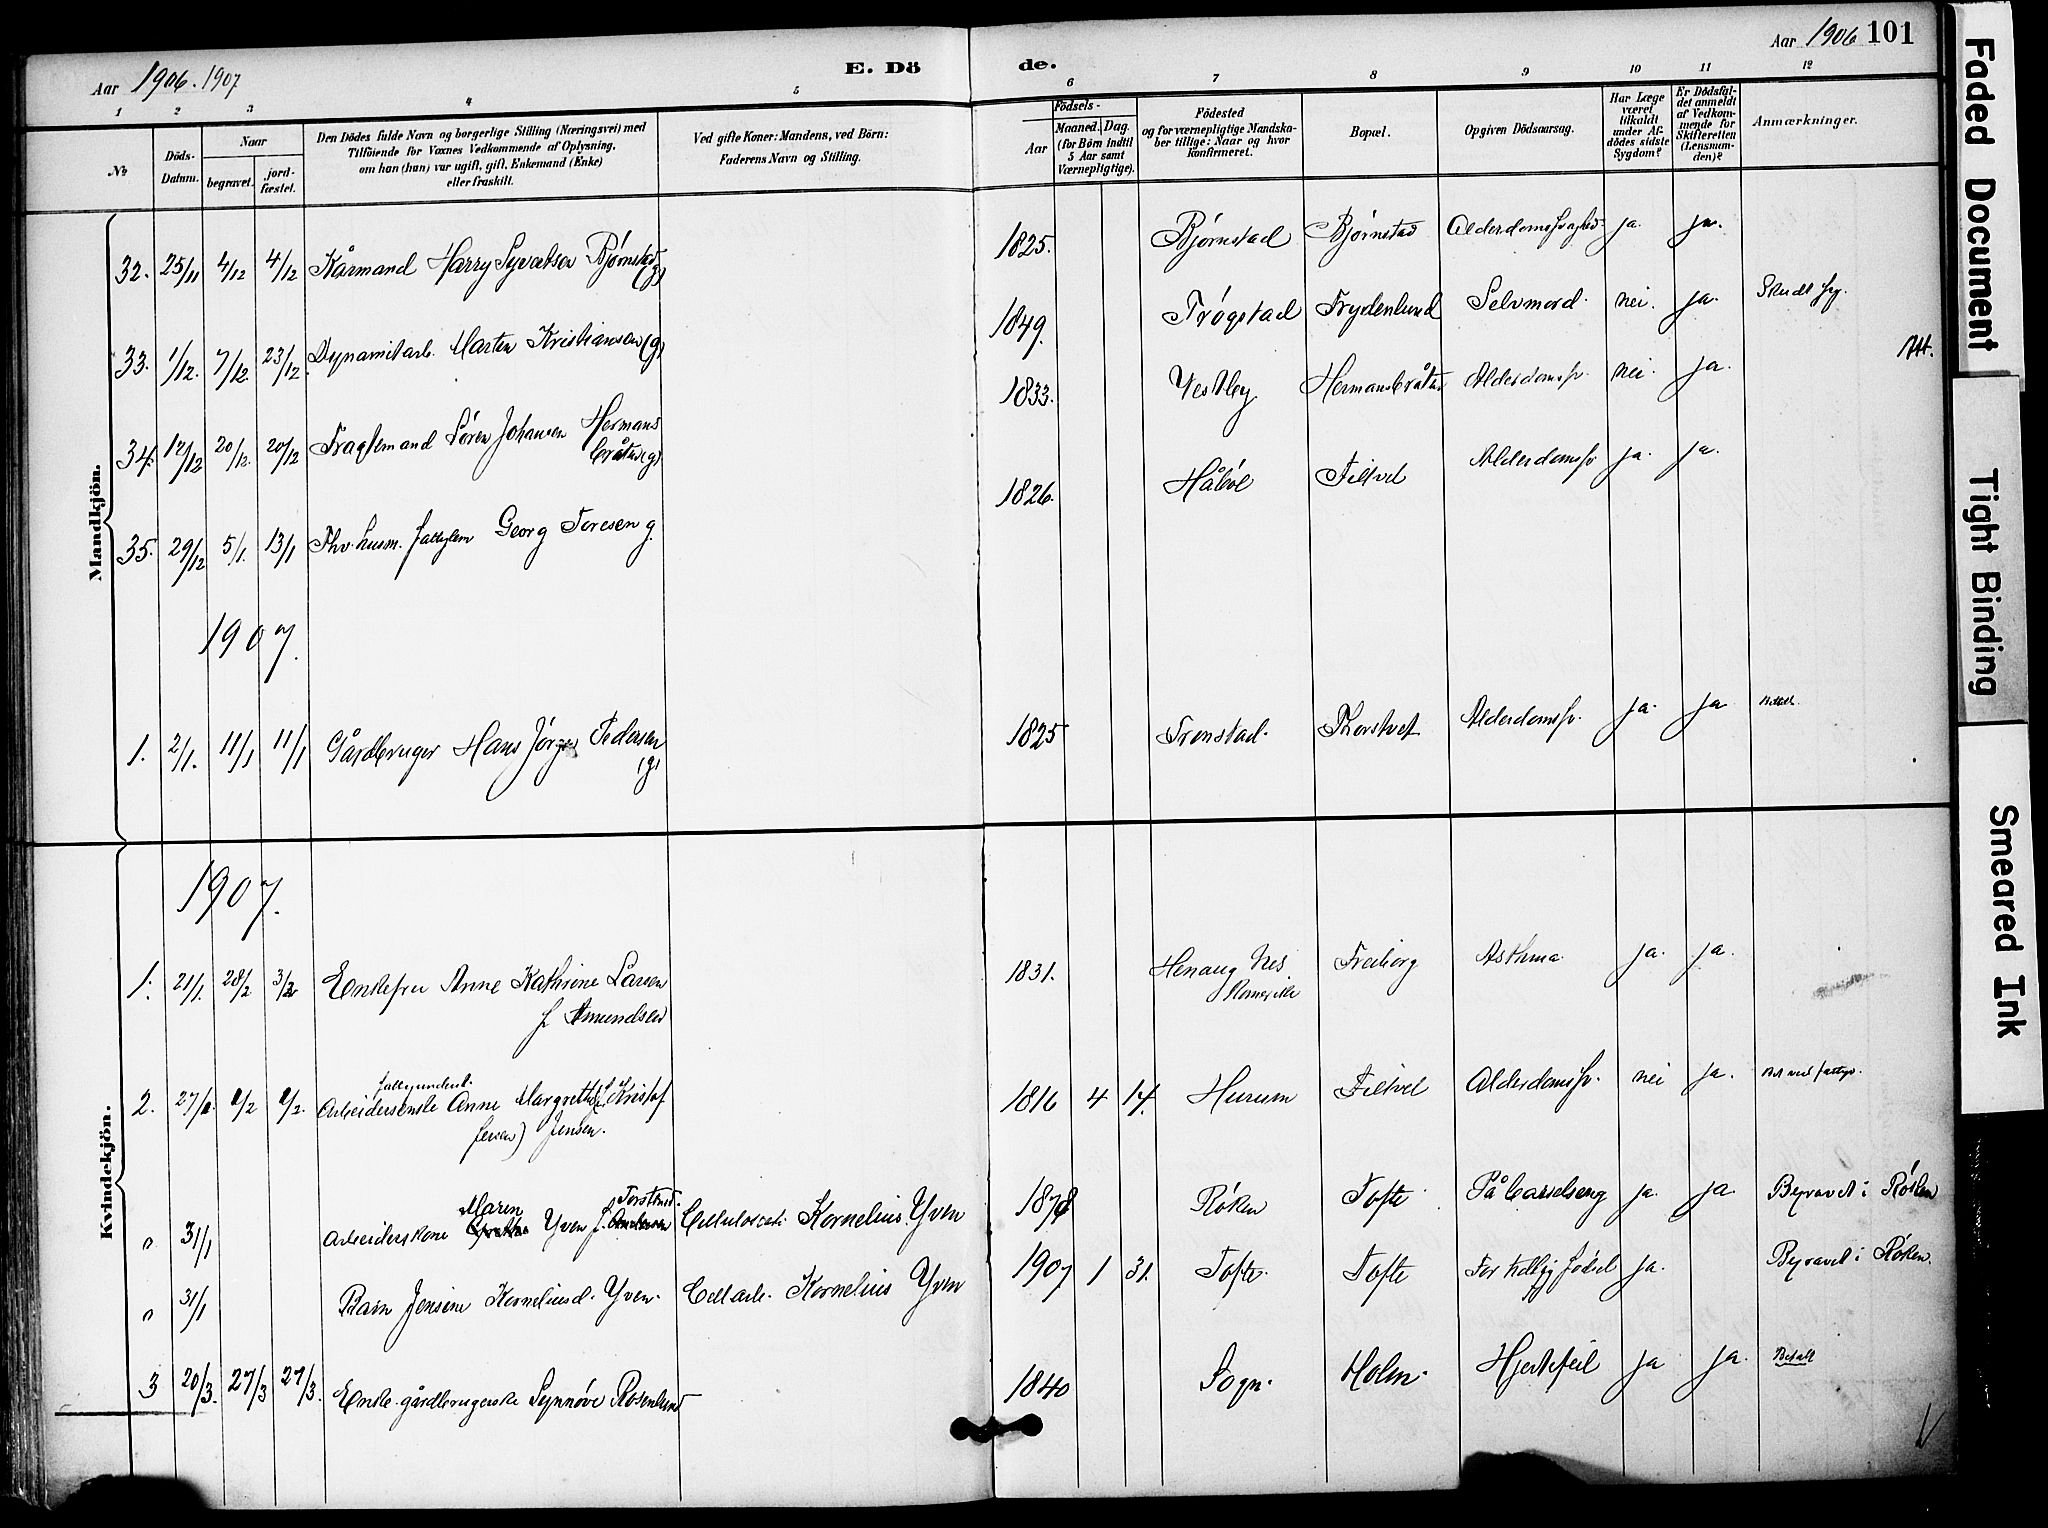 Aar 1906. 1907
E. Dö
de.
Aar 1906 101
1 2 3 4 5 6 7 8 9 10 11 12
No
Döds-Datum.
Naar
begravet.
jord-fæstet.
Den Dödes fulde Navn og borgerlige Stilling (Næringsvei) med
Tilföiende for Voxnes Vedkommende af Oplysning,
om han (hun) var ugift, gift, Enkemand (Enke)
eller fraskilt.
Ved gifte Koner: Mandens, ved Börn:
Faderens Navn og Stilling.
Födsels-
Aar
Maaned. Dag.
(for Börn indtil
5 Aar samt
Værnepligtige).
Födested
og for værnepligtige Mandska-
ber tillige: Naar og hvor
konfirmeret.
Bopæl.
Opgiven Dödsaarsag.
Har Læge
været
tilkaldt
under Af-
dödes sidste
Sygdom?
Er Dödsfal-
det anmeldt
af Vedkom-
mende for
Skifteretten
(Lensman-
den)?
Anmærkninger.
Mandkjön.
32. 25/11 4/12 4/12 Kårmand Harry Syvertsen Bjørnstad (g) 1825. Bjørnstad Bjørnstad Alderdomssvaghed ja. ja.
33. 1/12. 7/12. 23/12. Dynamitarb. Marten Kristiansen (g) 1849. Trøgstad Frydenlund Selvmord. nei. ja. Skudt sig.
34. 12/12 20/12. 20/12 Fragtemand Søren Johansen Hermans
bråten (g) 1833. Vestby Hermansbråten Alderdomssv. nei. ja.
35. 29/12 5/1. 13/1 Fhv. husm. Georg Toresen g. 1826. Håbøl Filtvet Alderdomssv ja. ja.
1907.
1. 2/1. 11/1 11/1 Gårdbruger Hans Jørgen Pedersen
(g) 1825 Tronstad. Thorstvet Alderdomssv. ja. ja
Kvindekjön.
1907.
1. 21/1. 28/2 3/3 Enkefru Anne Kathrine Larsen
f. Amundsen 1831. Henaug Nes
Romerike Freiborg Asthma ja. ja.
2. 27/1 9/2 9/2. fattigunderst.
Arbeidersenke Anne Margrethe Kristof
fersen) Jensen. 1816 4 14. Hurum Filtvet Alderdomssv. nei ja. Bet. ved fattigv.
" 31/1 Arbeiderskone Maren Yven f. Torstensd. Cellulosearb. Kornelius Yven 1878 Røken Tofte På barselseng ja. ja. Begravet i Røken
" 31/1 Barn Jensine Korneliusd. Yven. Cell arb. Kornelius Yven 1907 1 31. Tofte. Tofte For tidlig født ja. Begravet i Røken.
3 20/3. 27/3 27/3. Enke. gårdbrugerske Synnøve Rosenlund 1840 Sogn. Holm. Hjertefeil ja ja. Betalt
Faded Document
Tight Binding
Smeared Ink